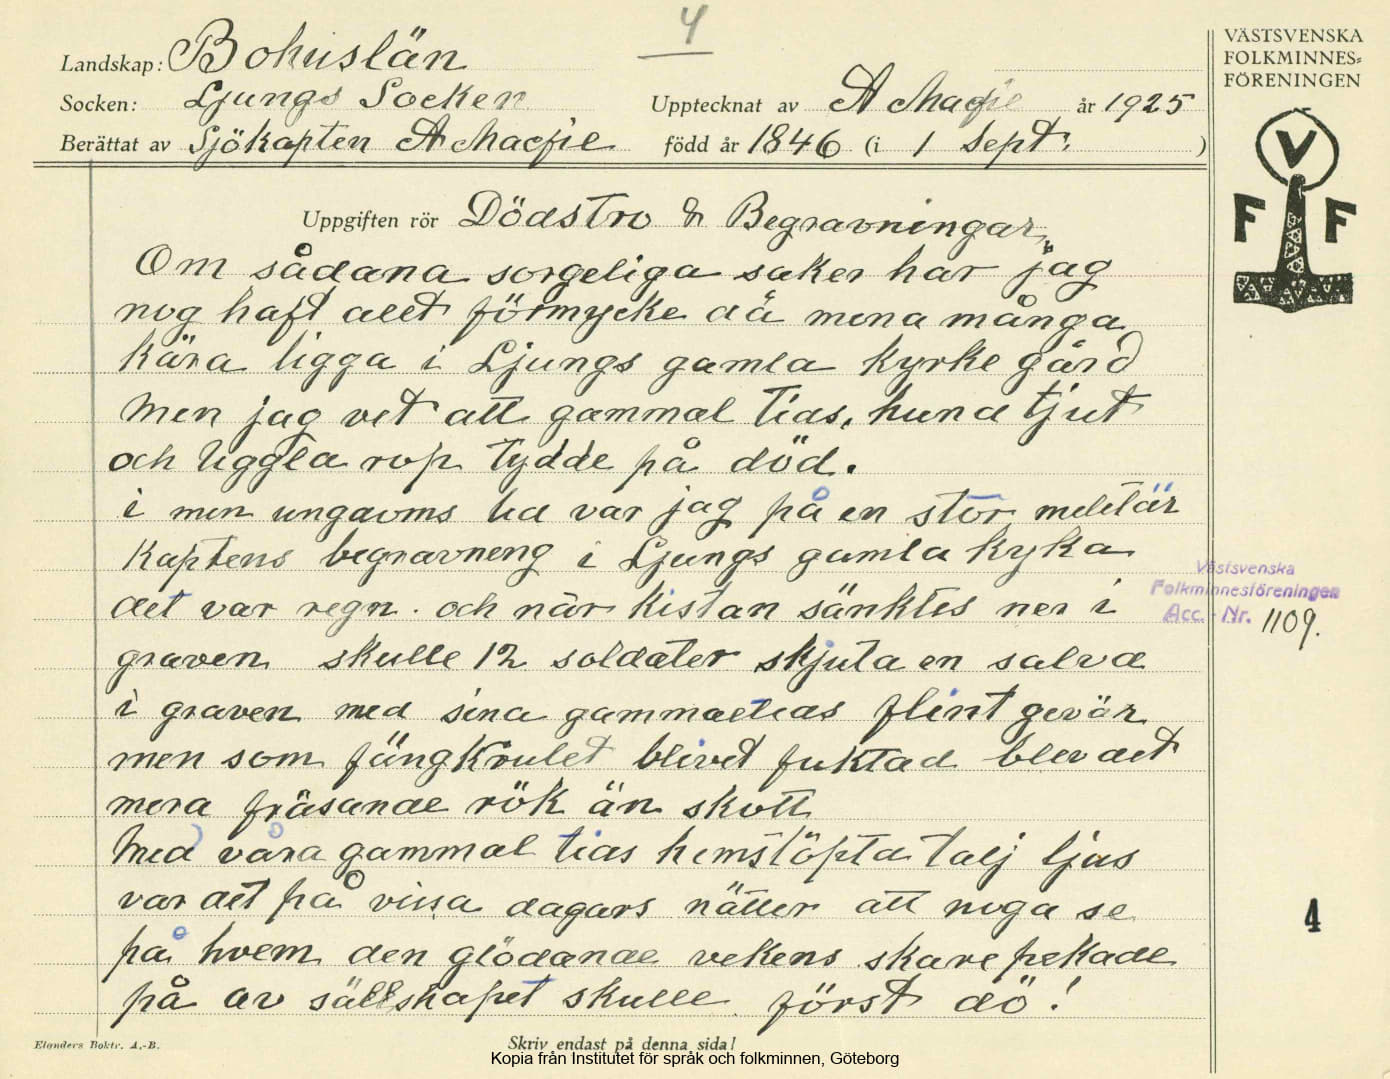 4
Landskap: Bohuslän
Socken: Ljungs Socken
Upptecknat av A Macfie år 1925
Berättat av Sjökapten A Macfie född år 1846 (i 1 Sept. )
VÄSTSVENSKA
FOLKMINNES=
FÖRENINGEN
V
F F
Uppgiften rör Dödstro & Begravningar
Om sådana sorgeliga saker har jag
nog haft allt förmycke då mina många
kära ligga i Ljungs gamla kyrke gård
Men jag vet att gammal tids, hund tjut
och Uggla rop tydde på död.
i min ungdoms tid var jag på en stor militär
Kaptens begravning i Ljungs gamla kyka
det var regn. och når kistan sänktes ner i
graven skulle 12 soldater skjuta en salva
i graven med sina gammaltids flint gevär
men som fängkrutet blivit fuktad blev det
mera fräsande rök än skott
Med våra gammal tids hemstöpta talj ljus
var det på vissa dagars nätter att noga se
på hvem den glödande vekens skare pekade
på av sällskapet skulle först dö!
Västsvenska
Folkminnesföreningen
Acc. - Nr. 1109.
4
Elanders Boktr. A.-B.
Skriv endast på denna sida!
Kopia från Institutet för språk och folkminnen, Göteborg